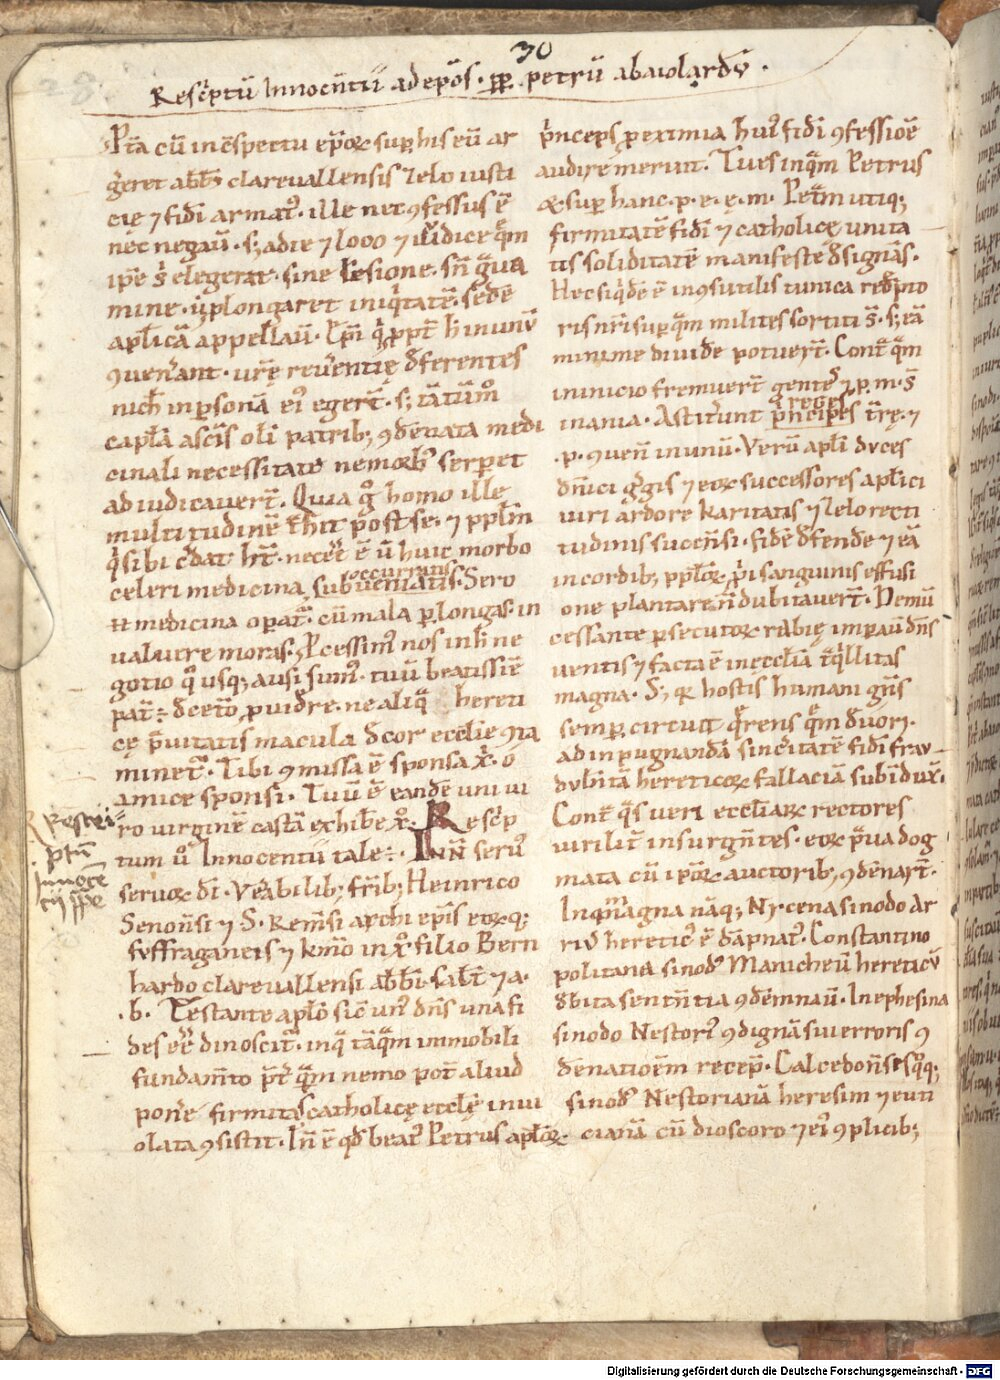 30
Resc̄ptū Innocentii ad ep̄os . ꝓp̄ petrū abaiolardū .
P̄ta cū in c̄spectu ep̄oꝝ suꝑ his eū ar
gˀeret abbˢ clarevallensis zelo iusti
cię ⁊ fidi armatꝰ . ille nec ꝯfessus ē
nec negavˀ . sꝫ a die ⁊ loco ⁊ iudice qͣm
ip̄e sͥ elegerat . sine lesione . sn̄ gͣva
mine . ut ꝓlongaret iniqͥtatē . sedē
ap̄licā appellavˀ . Ep̄i qͥ ꝓpt̄ h in unū
ꝯvenˀant . vr̄ę reverˀentię dˀferentes
nichˀ in ꝑsonā eiꝰ egerˀt . sꝫ tātūmͦ
capl̄a a sc̄is oli patribꝫ ꝯdēnata medi
cinali necessitate ne morbꝰ serperet
adiudicaverˀt . Quia gͦ homo ille
multitudinē t̄hit post se . ⁊ pp̄lm̄
qͥ sibi cˀdat ht̄ . necesse ē ut huic morbo
celeri medicina subveniatis . Sero
occurratis
n̄ medicina oꝑat̄ . cū mala ꝑ longas in
valuere moras . Pˀcessimꝰ nos in h ne
gotio qͦ usqꝫ ausi sumꝰ . tuū beatissīe
pat̄ dˀcetˀo ꝓvidˀre . ne aliqͣ hereti
cę pˀvitatis macula dˀcor ecclesię ꝯta
minetˀ . Tibi ꝯmissa ē sponsa x̄ . o
amice sponsi . Tuū ē eandē uni vi
ro virginē castā exhibˀe x̄ . Resc̄p
tum vͦ Innocentii tale . INN̄ servꝰ
Resc̄
ptū
Innoce
tii pp̄e
servoꝝ di . Veˀabilibꝫ frīb; Heinrico
Senonˀsi ⁊ S . Remˀsi archiep̄is eoꝝqꝫ
suffraganeis ⁊ kmˀo in xͦ filio Bern
hardo clarevallensi abb̄i . salt̄ ⁊ a .
.b. Testante apl̄o sic̄ unꝰ dn̄s una fi
des eē dinoscit̄ . in qͣ tāqͣm immobili
fundam̄to pt̄ qͣm nemo pot̄ aliud
ponˀe firmitas catholicę ecclę invi
olata ꝯsistit . In̄ ē qd̄ beatꝰ Petrus apl̄oꝝ
pˀnceps ꝓ eximia huiꝰ fidi ꝯfessioē
audire meruit . Tu es inqͣm Petrus
⁊ suꝑ hanc . p . e . ę . m . Petˀm utiqꝫ
firmitatē fidi ⁊ catholicę unita
tis soliditatē manifeste dˀsignās .
Hec siqͥdē ē inꝯsutilis tunica redˀpto
ris nr̄i suꝑ qͣm milites sortiti s̄ . sꝫ eā
minime dividˀe potuerˀt . Cont̄ qͣm
in inicio fremuerˀt gentes ⁊ p . m . s̄
reges
inania . Astiterˀunt pˀncipes tr̄ę . ⁊
.p. ꝯvenˀ in unū . Verū apl̄i duces
dn̄ici gˀgis ⁊ eoꝝ successores apl̄ici
viri ardore karitatis ⁊ zelo recti
tudinis succēsi . fidē dˀfendˀe ⁊ eā
in cordibꝫ pp̄loꝝ pˀi sanguinis effusi
one plantare n̄ dubitaverˀt . Demū
cessante ꝑsecutoꝝ rabię imꝑavˀ dn̄s
ventis ⁊ facta ē in eccl̄iā tˀqͥllitas
magna . Sꝫ qꝛ hostis humani gn̄is
semꝑ circuit qͣrens qͣm dˀvorˀ .
ad inpugnandā sincˀitatē fidi frau
dulˀntā hereticoꝝ fallaciā subindux̄ .
Cont̄ qͣs veri eccl̄iaꝝ rectores
virilit̄ insurgn̄tes . eoꝝ pˀva dog
mata cū ip̄oꝝ auctoribꝫ ꝯdēnarˀt .
In qͣ magna nāqꝫ Nycena sinodo Ar
riꝰ hereticꝰ ē dāpnatꝰ . Constantino
politana sinodꝰ Manicheū hereticū
dˀbita sentn̄tia ꝯdēmnavˀ . In ephesina
sinodo Nestorꝰ ꝯdignā sui erroris ꝯ
dˀnatioēm recep̄ . Calcedonˀsesqͥ qꝫ
sinodꝰ Nestorianā heresim ⁊ euti
cianā cū dioscoro ⁊ eiꝰ ꝯplicibꝫ
Digitalisierung gefördert durch die Deutsche Forschungsgemeinschaft - DFG